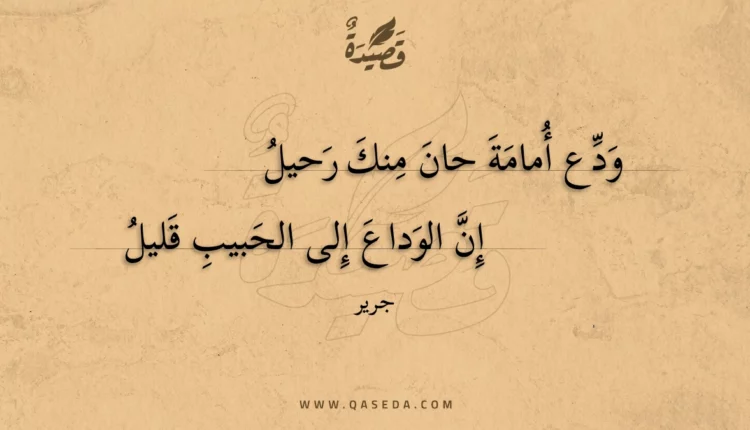 قَصِيْدَةٌ
وَدِّع أُمامَةَ حانَ مِنكَ رَحيلُ
إِنَّ الوَداعَ إِلى الحَبيبِ قَليلُ
جرير
WWW.QASEDA.COM